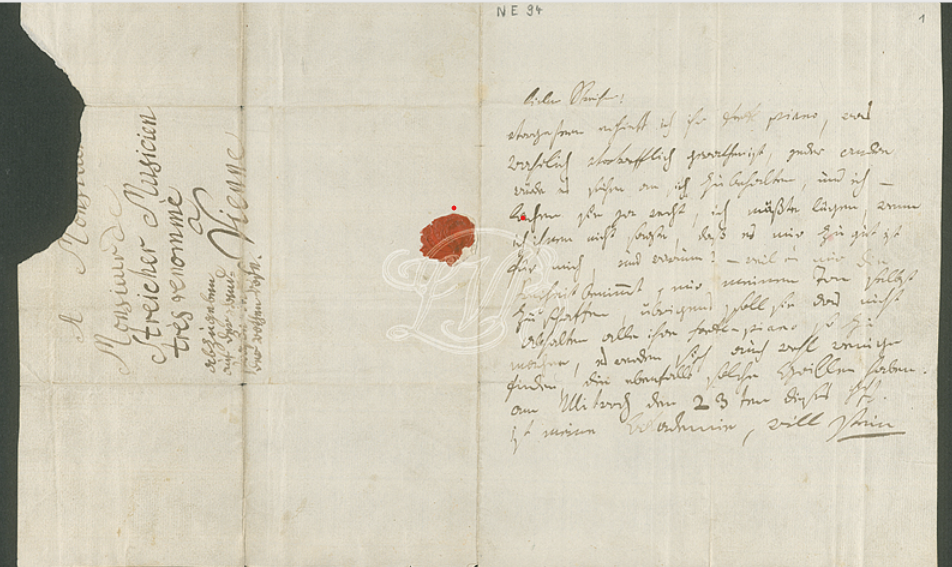 NE 94
1
A Monsieur
Monsieur de
Streicher Musicien
tres renommé
a
Vienne
abzugeben
auf der Land-
der rothen Rose.
lieber Streicher!
vorgestern erhielt ich ihr forte piano, was
wahrlich vortrefflich, jeder andre
würde es suchen an sich zu behalten, und ich —
lachen sie ja recht, ich müßte lügen, wenn
ich ihnen nicht sagte, daß es mir zu gut ist
für mich, und warum? — weil es mir die
Freiheit benimmt, mir meinen Ton selbst
zu schaffen, übrigens soll sie das nicht
abhalten alle ihre forte-piano so zu
machen, es werden sich auch wohl wenige
finden, die ebenfalls solche Grillen haben.
am Mitwoch den 23ten dieses
ist meine Academie, will stein